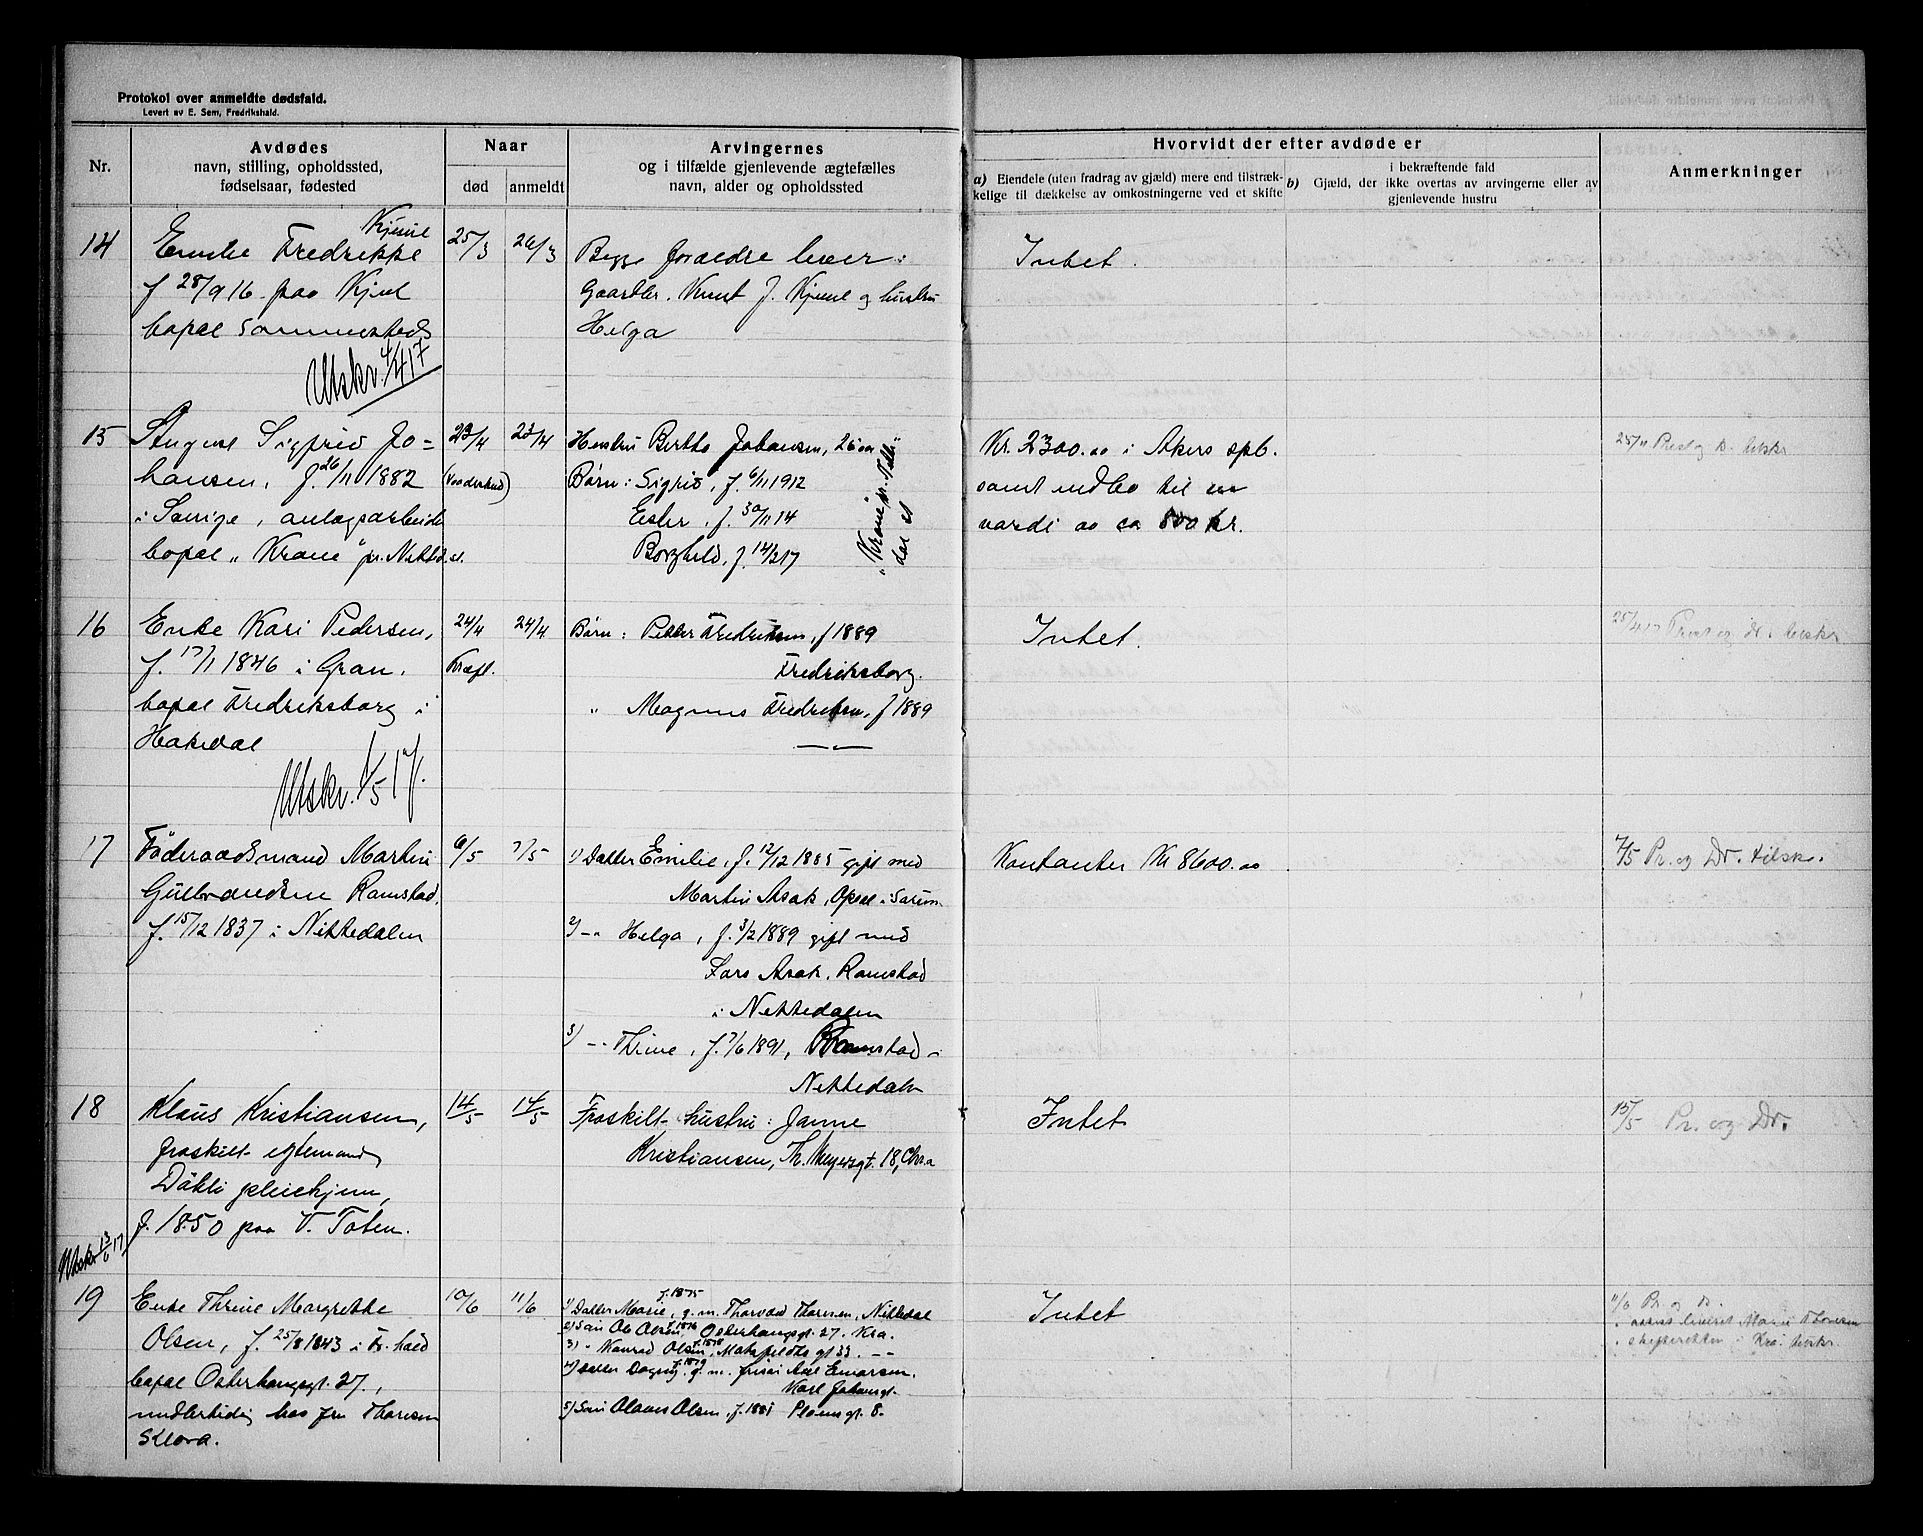 Protokol over anmeldte dødsfald.
Levert av E. Sem, Fredrikshald.
Nr.
Avdødes
navn, stilling, opholdssted,
fødselsaar, fødested
Naar
død
anmeldt
Arvingernes
og i tilfælde gjenlevende ægtefælles
navn, alder og opholdssted
Hvorvidt der efter avdøde er
a) Eiendele (uten fradrag av gjæld) mere end tilstræk-
kelige til dækkelse av omkostningerne ved et skifte
i bekræftende fald
b) Gjæld, der ikke overtas av arvingerne eller av
gjenlevende hustru
Anmerkninger
14
Kjuul
Fredrikke
f 28/9 16 paa Kjul
bopæl sammesteds
Utskr. 4/4 17
25/3
26/3
Begge forældre lever:
Gaardbr. Knut J. Kjuul og hustru
Helga
Intet.
15
August Sigfrid Jo=
hansen, f. 26/11 1882
i Sverige, anlægsarbeider
bopæl "Krane" pr. Nittedal.
23/4
23/4
Hustru Bertha Johansen, 26 aar
Børn: Sigrid, f. 6/11 1912
Ester, f. 30/11 14
Borghild, f. 14/2 17
"Krane" pr. Nitte
dal st
Kr. 2300.00 i Akers spb.
samt indbo til en
værdi av ca 800 kr.
25/4 Præst og D. tilskr
16
Enke Kari Pedersen,
f. 17/1 1846 i Gran,
bopæl Fredriksborg i
Hakedal
Utskr. 1/5 17.
24/4
Kræft.
24/4
Børn: Petter Fredriksen, f 1889
Fredriksborg.
" Magnus Fredriksen, f 1889
Intet.
25/4 17 Præst og D. tilskr
17
Føderaadsmand Martin
Gulbrandsen Ramstad,
f. 15/12 1837 i Nittedalen
6/5
7/5
1) Datter Emilie, f. 12/12 1885 gift med
Martin Asak, Opsal i Sørum.
2) -"- Helga, f. 3/2 1889 gift med
Lars Asak, Ramstad
i Nittedalen
3) -"- Thrine, f. 7/6 1891, Ramstad i
Nittedalen
Kontanter Kr 8600.00
7/5 Pr. og Dr. tilskr.
18
Klaus Kristiansen,
fraskilt egtemand,
Døhli pleiehjem,
f. 1850 paa V. Toten.
Utskr 13/6 17
14/5
14/5
Fraskilt hustru: Janne
Kristiansen, Th. Meyersgt. 18, Chr.a
Intet
15/5 Pr. og Dr.
19
Enke Thrine Margrethe
Olsen, f. 25/8 1843 i Fr.hald
bopæl Osterhausgt. 27,
midlertidig hos fru Thoresen
Skøra.
10/6
11/6
f. 1875
1) Datter Marie, g. m. Thorvald Thoresen, Nittedal
f. 1876
2) Søn Ole Olsen, Osterhausgt. 27. Kra.
f. 1878
3) " Konrad Olsen, gt 33. -"-
f. 1879
4) Datter Dagny, g. m. frisør Axel Einarsen,
Karl Johansgt.
5) Søn Olaus Olsen, f. 1881 Ploensgt. 8.
Intet
11/6 Pr. og D.
" Marie Thoresen
" skifteretten i Kra. tilskr.